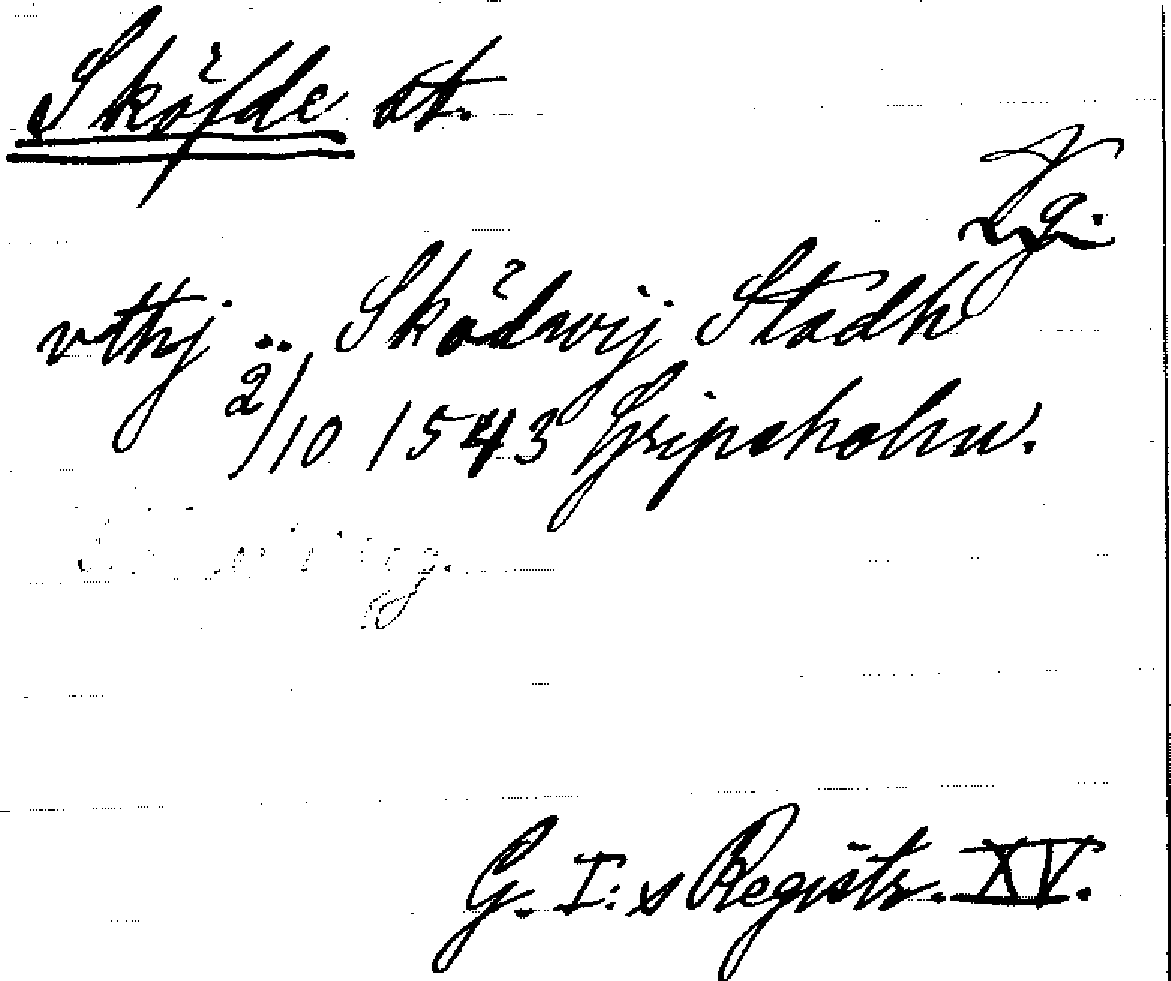 Sköfde st.
Vg.
vthj .. Sködwij Stadh
2/10 1543 Gripsholm.
G. I:s Registr. XV.